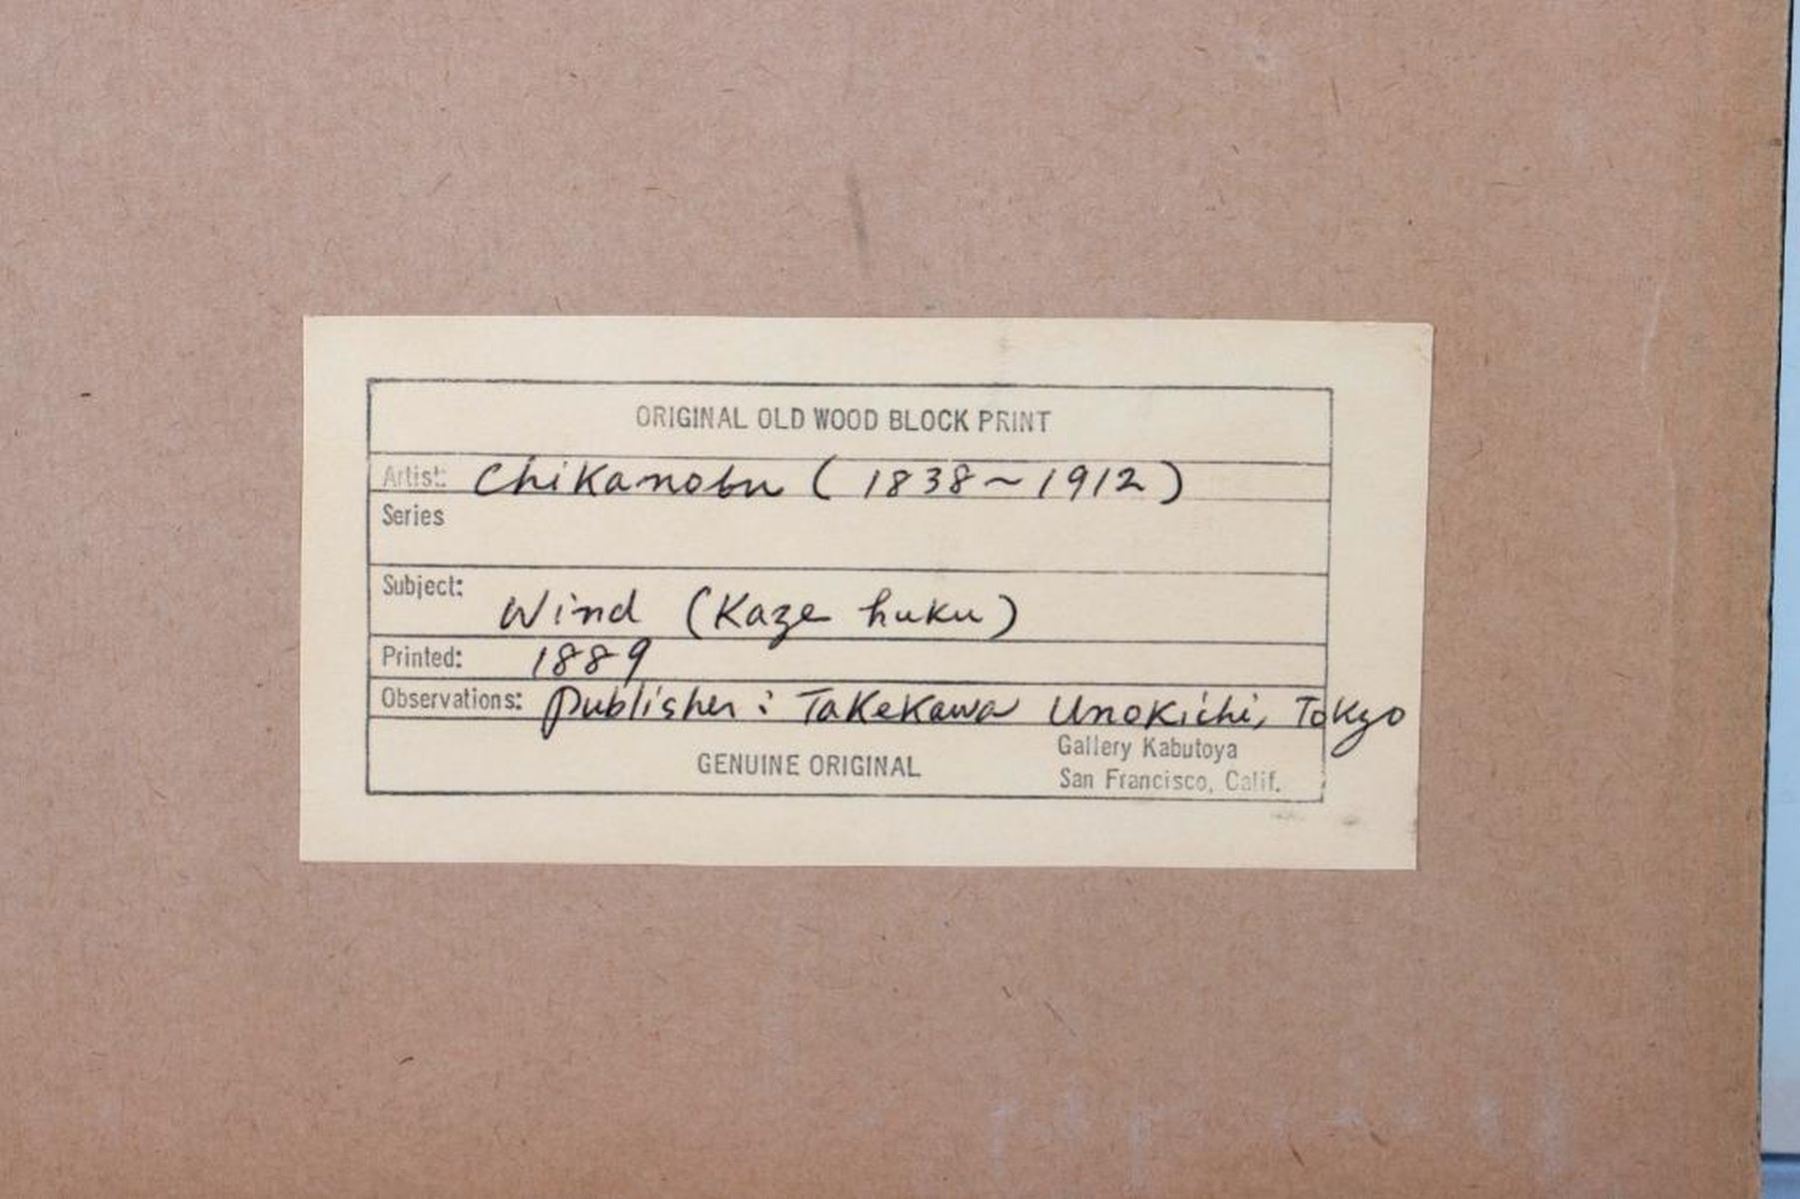 ORIGINAL OLD WOOD BLOCK PRINT
Artist: Chikanobu (1838~1912)
Series
Subject: Wind (Kaze huku)
Printed: 1889
Observations: Publisher: Takekawa Unokichi, Tokyo
GENUINE ORIGINAL
Gallery Kabutoya
San Francisco, Calif.